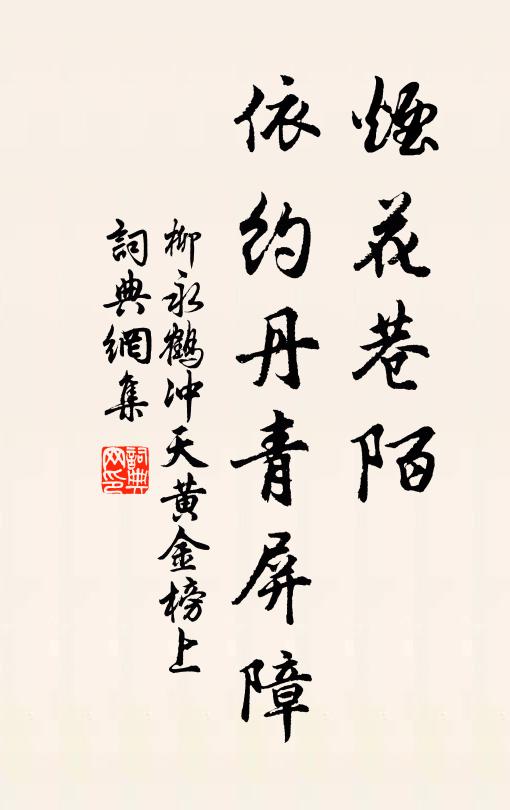 煙花巷陌
依約丹青屏障
柳永鶴冲天黄金榜上
詞典網集
詞典
网印